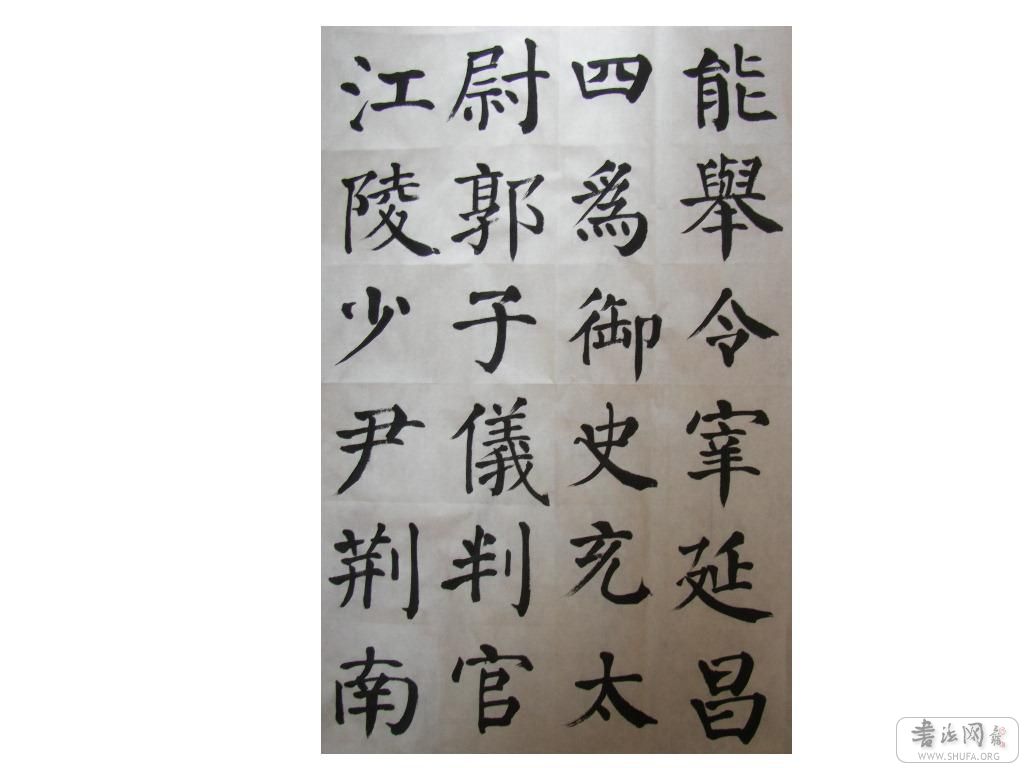 能舉令宰延昌
四爲御史充太
尉郭子儀判官
江陵少尹荆南
書法网
WWW.SHUFA.ORG